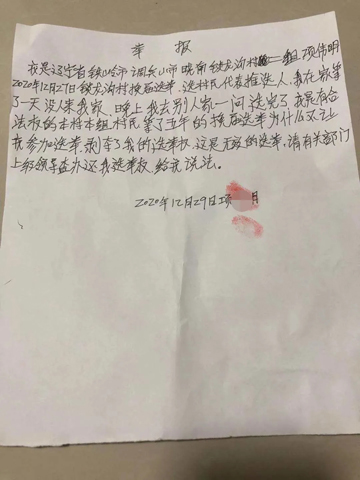 举报
我是辽宁省铁岭市调兵山市晓南锁龙沟村二组项伟明
2020年12月27日锁龙沟村换届选举,选村民代表推选人,我在家等
了一天没人来我家,晚上我去别人家一问选完了我是有合
法权的本村本组村民等了五年的换届选举为什么不让
我参加选举,剥夺了我的选举权,这是无效的选举,请有关部门
上级领导查办还我选举权,给我说法。
2020年12月29日项 月